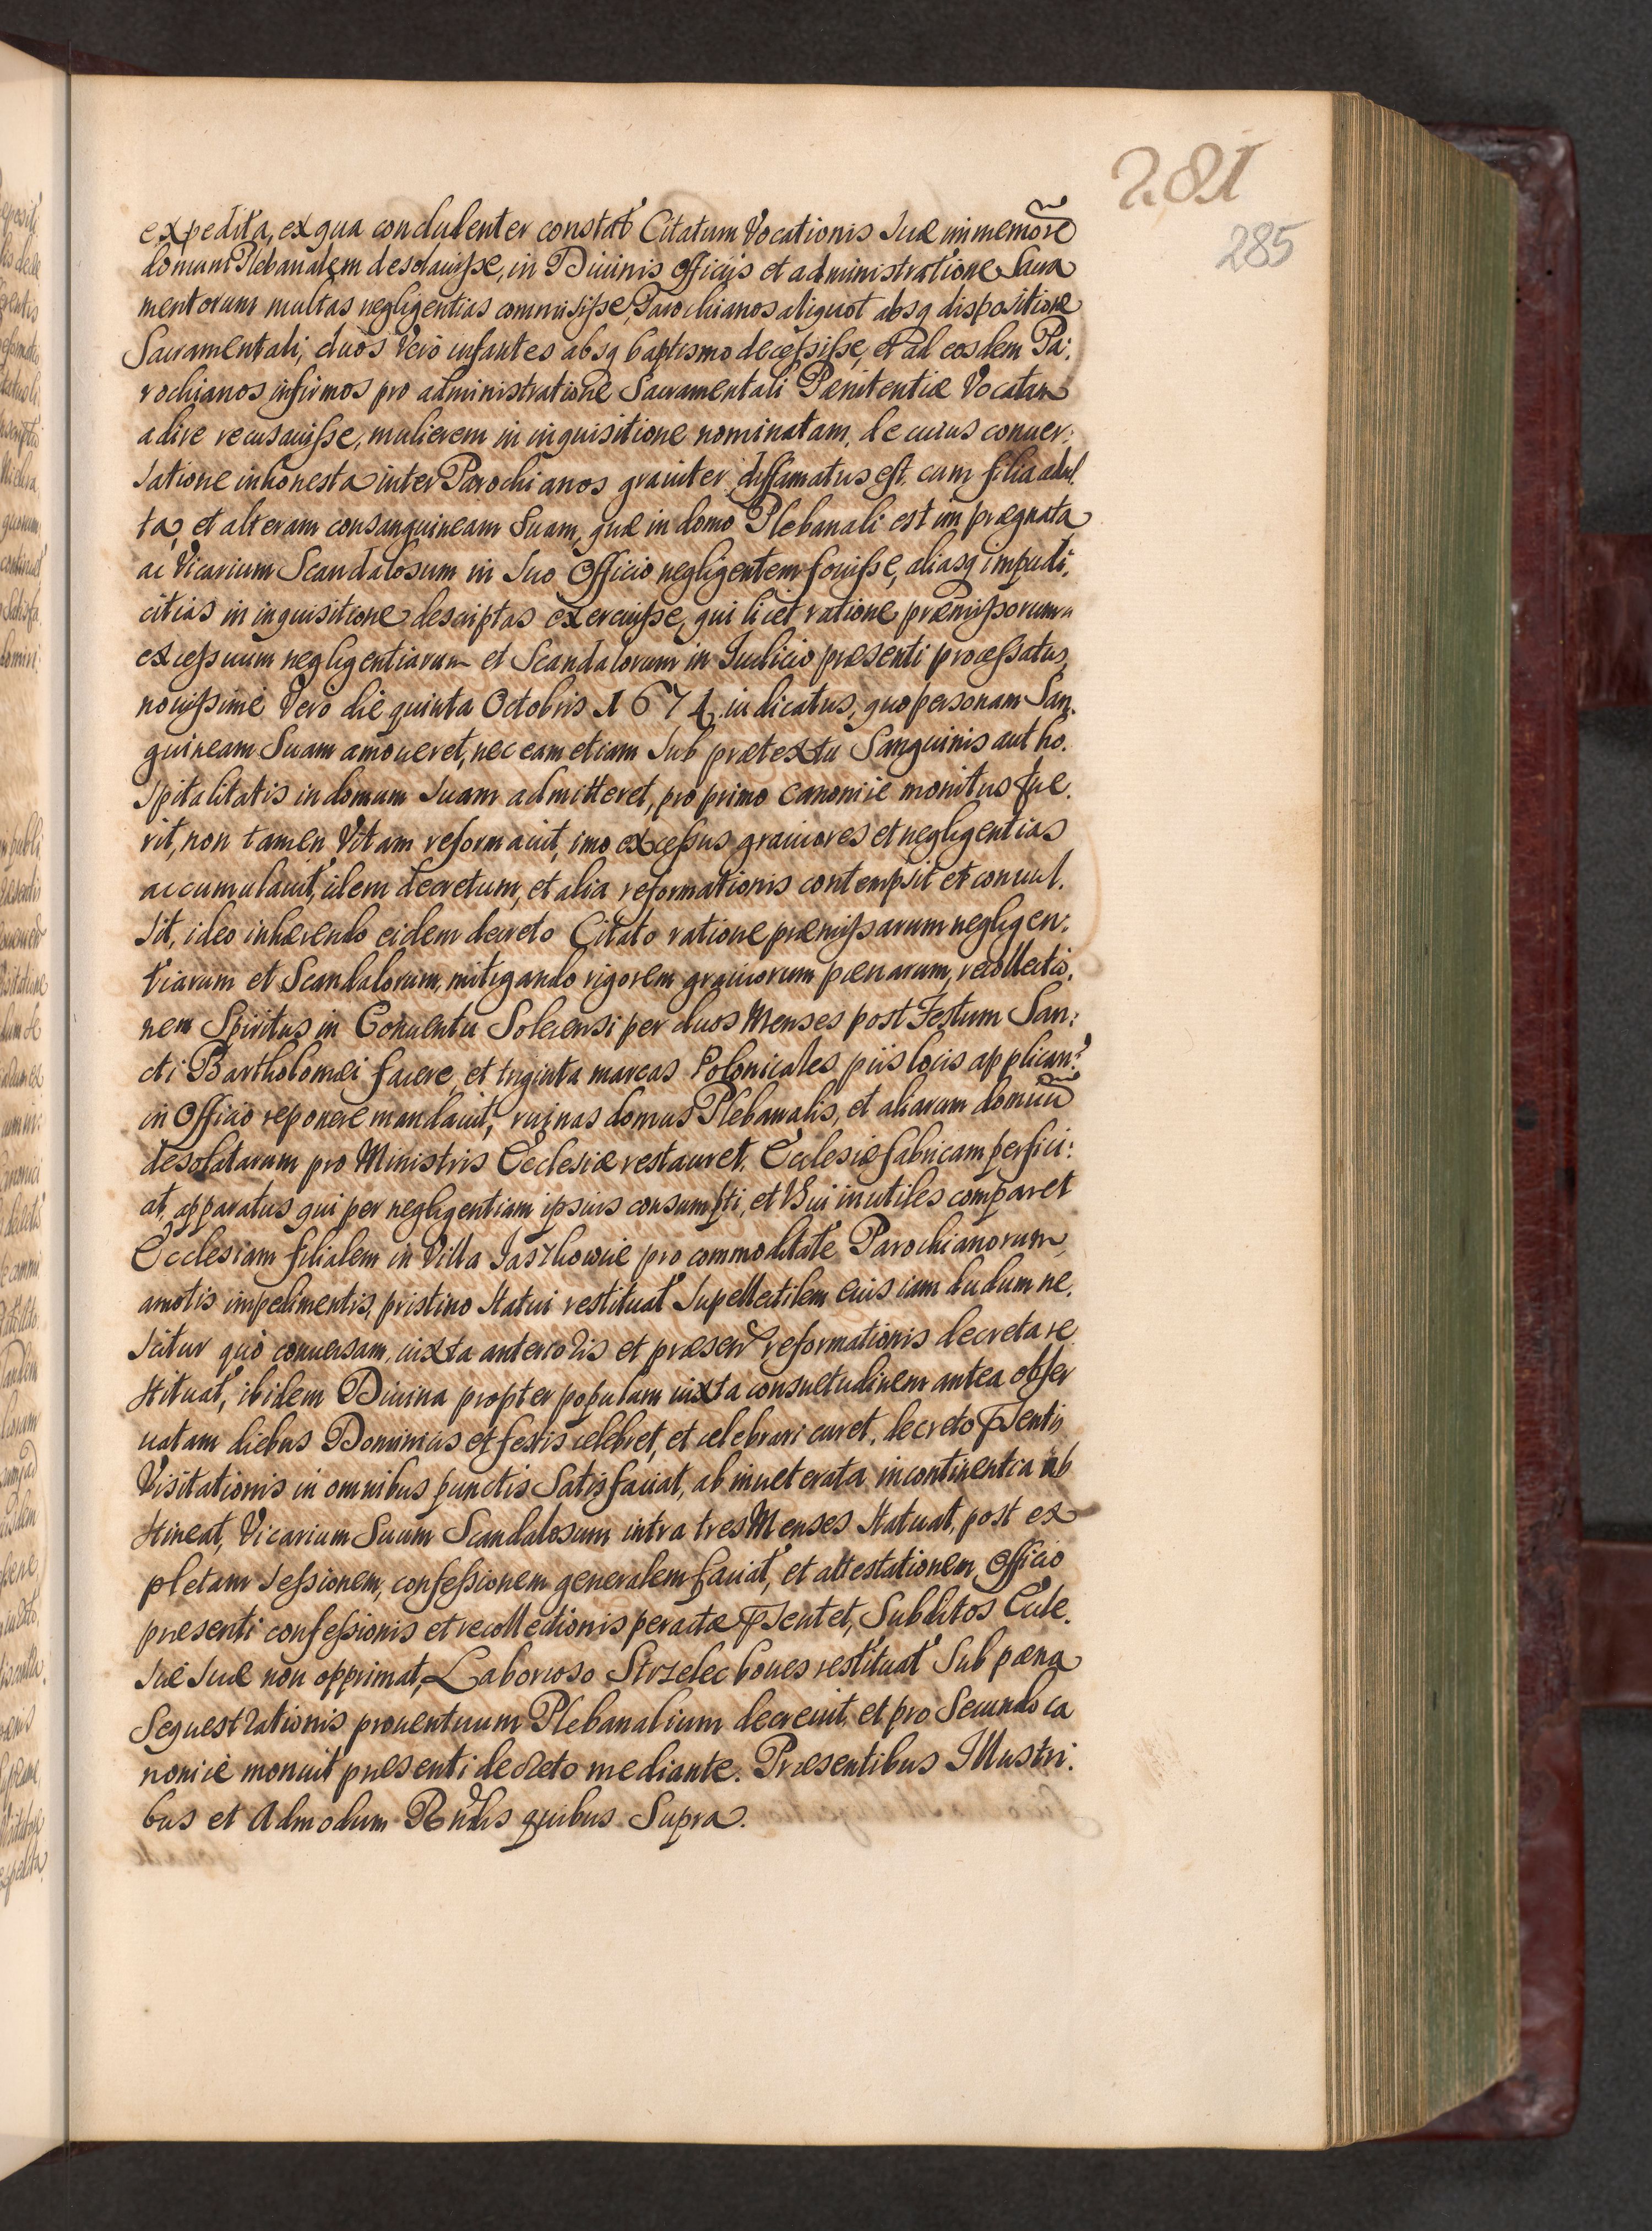 281
285
expedita, ex qua condulenter constat Citatum Vocationis suæ immemorē
domum Plebanalem desolauisse, in Diuinis officijs et administratione Sacra
mentorum multas negligentias commisisse, Parochianos aliquot absq dispositione
Sacramentali, duos vero infantes absq baptismo decessisse, et ad eosdem Pa:
rochianos infirmos pro administratione Sacramentali Pænitentiæ Vocatum
adire recusauisse, mulierem in inquisitione nominatam, de cuius conuer:
satione inhonesta inter Parochianos grauiter diffamatus est, cum filia adul
ta, et alteram consanguineam Suam, quæ in domo Plebanali est imprægnata
ac Vicarium Scandalosum in suo Officio negligentem fouisse, aliasq impudi:
citias in inquisitione descriptas exercuisse, qui licet ratione præmissorum
excessuum negligentiarum et Scandalorum in Iudicio præsenti processatus,
nouissime Vero die quinta Octobris 1674 iudicatus, quo personam San.
guineam Suam amoueret, nec eam etiam sub prætextu Sanguinis aut ho.
spitalitatis in domum suam admitteret, pro primo canonicè monitus fue.
rit, non tamen Vitam reformauit, imo excessus grauiores et negligentias
accumulauit, idem decretum, et alia reformationis contempsit et conuul.
sit, ideo inhærendo eidem decreto Citato ratione præmissarum negligen:
tiarum et Scandalorum, mitigando rigorem grauiorum pænarum, recollectio.
nem Spiritus in Conuentu Solecensi per duos Menses post Festum San:
cti Bartholomæi facere, et triginta marcas Polonicales piis locis applican:
in Officio reponere mandauit, ruinas domus Plebanalis, et aliarum domuū
desolatarum pro Ministris Ecclesiæ restauret, Ecclesiæ fabricam perfici:
at, apparatus qui per negligentiam ipsius consumpti, et Vsui inutiles comparet
Ecclesiam filialem in Villa Jaszkowice pro commoditate Parochianorum,
amotis impedimentis, pristino statui restituat supellectilem eius iam dudum ne.
scitur quò conuersam, iuxta anterioris et præsen reformationis decreta re
stituat, ibidem Diuina propter populum iuxta consuetudinem antea obser
uatam diebus Dominicis et festis celebret, et celebrari curet, decreto Psentis
Visitationis in omnibus punctis Satisfaciat, ab inueterata incontinentia ab
stineat, Vicarium Suum Scandalosum intra tres Menses statuat, post ex
pletam sessionem, confessionem generalem faciat, et attestationem Officio
præsenti confessionis et recollectionis peractæ Psentet, Subditos Eccle.
siæ suæ non opprimat, Laborioso Strzelec boues restituat Sub pæna
Sequestrationis prouentuum Plebanalium decreuit, et pro Secundo ca
nonicè monuit præsenti decreto mediante. Præsentibus Illustri.
bus et Admodum Rndis quibus Supra.